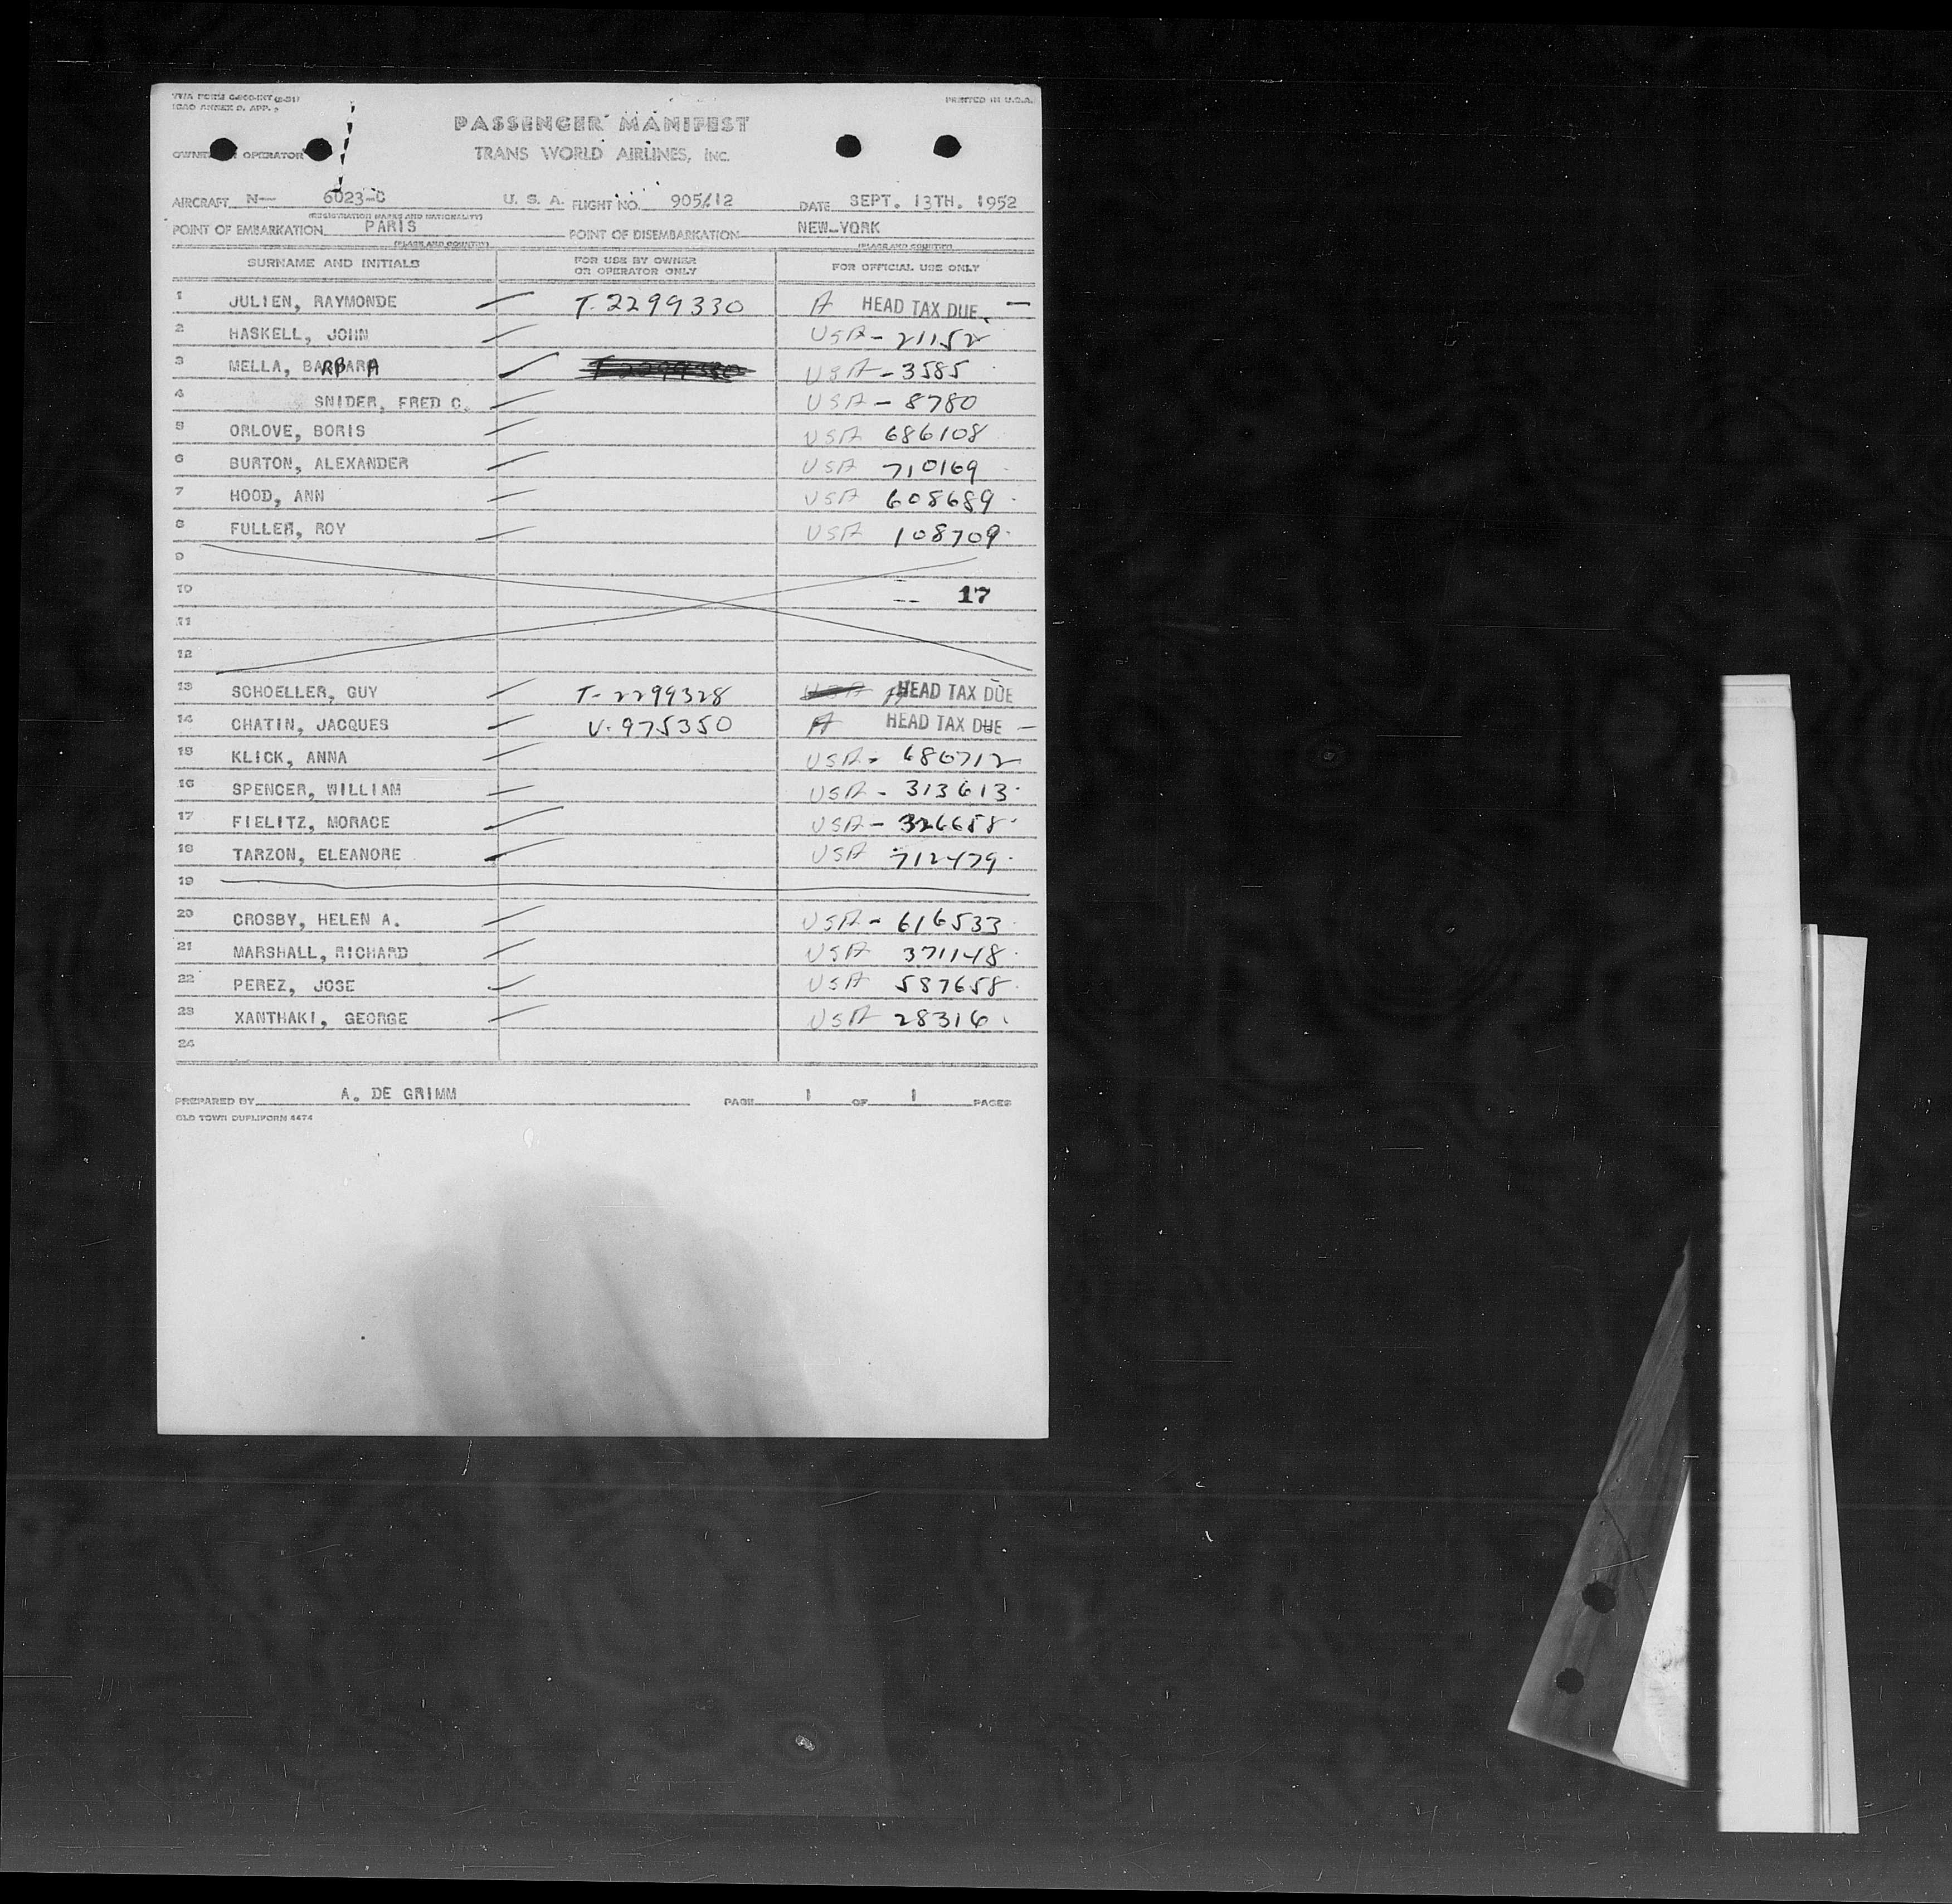 TWA FORM C-900-INT (8-51)
ICAO ANNEX 9. APP.
PRINTED IN U.S.A.
PASSENGER MANIFEST
OWNER OR OPERATOR TRANS WORLD AIRLINES, INC.
AIRCRAFT N-- 6023-C U. S. A. FLIGHT NO. 905/12 DATE SEPT. 13TH. 1952
(REGISTRATION MARKS AND NATIONALITY)
POINT OF EMBARKATION PARIS POINT OF DISEMBARKATION NEW-YORK
(PLACE AND COUNTRY) (PLACE AND COUNTRY)
SURNAME AND INITIALS FOR USE BY OWNER OR OPERATOR ONLY FOR OFFICIAL USE ONLY
1 JULIEN, RAYMONDE T-2299330 A HEAD TAX DUE —
2 HASKELL, JOHN USA - 21152
3 MELLA, BARBARA T-2299330 USA - 3585
4 SNIDER, FRED C. USA - 8780
5 ORLOVE, BORIS USA 686108
6 BURTON, ALEXANDER USA 710169
7 HOOD, ANN USA 608689
8 FULLER, ROY USA 108709
9
10 -- 17
11
12
13 SCHOELLER, GUY T-2299328 USA A HEAD TAX DUE
14 CHATIN, JACQUES V-975350 A HEAD TAX DUE —
15 KLICK, ANNA USA - 686712
16 SPENCER, WILLIAM USA - 313613
17 FIELITZ, MORACE USA - 326658
18 TARZON, ELEANORE USA 712479
19
20 CROSBY, HELEN A. USA - 616533
21 MARSHALL, RICHARD USA 371148
22 PEREZ, JOSE USA 587658
23 XANTHAKI, GEORGE USA 28316
24
PREPARED BY A. DE GRIMM PAGE 1 OF 1 PAGES
OLD TOWN DUPLIFORM 4474